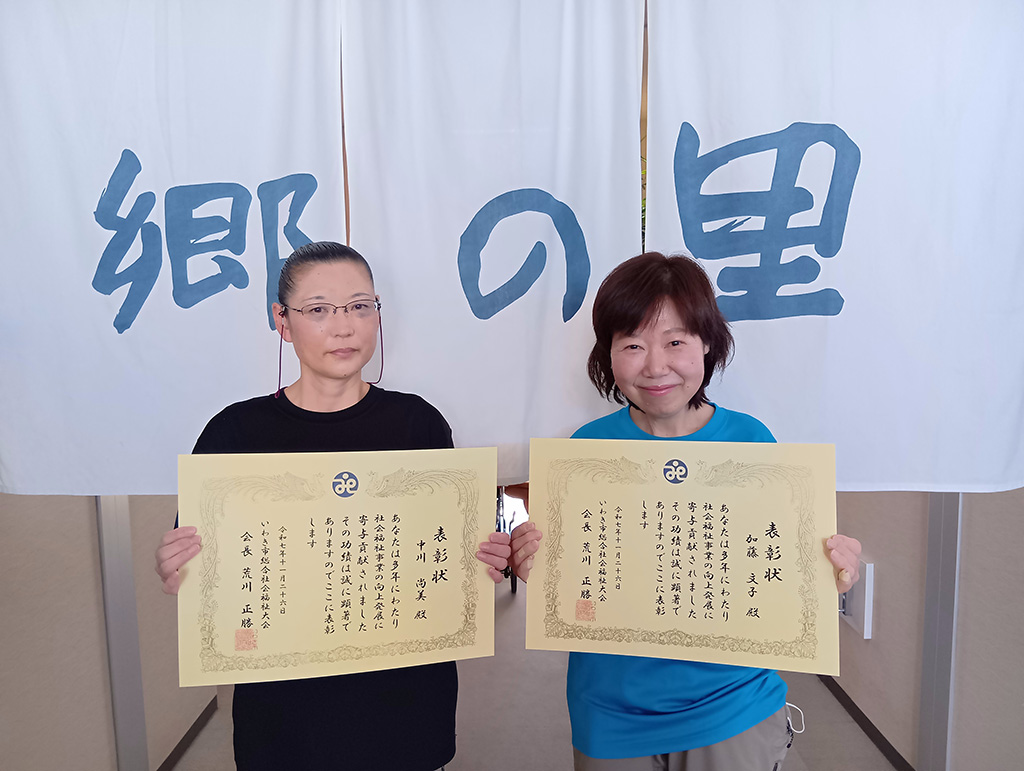 郷の里
表彰状
中川 尚美 殿
あなたは多年にわたり
社会福祉事業の向上発展に
寄与貢献されました
その功績は誠に顕著で
ありますのでここに表彰
します
令和七年十一月二十六日
いわき市総合社会福祉大会
会長 荒川 正勝
表彰状
加藤 文子 殿
あなたは多年にわたり
社会福祉事業の向上発展に
寄与貢献されました
その功績は誠に顕著で
ありますのでここに表彰
します
令和七年十一月二十六日
いわき市総合社会福祉大会
会長 荒川 正勝